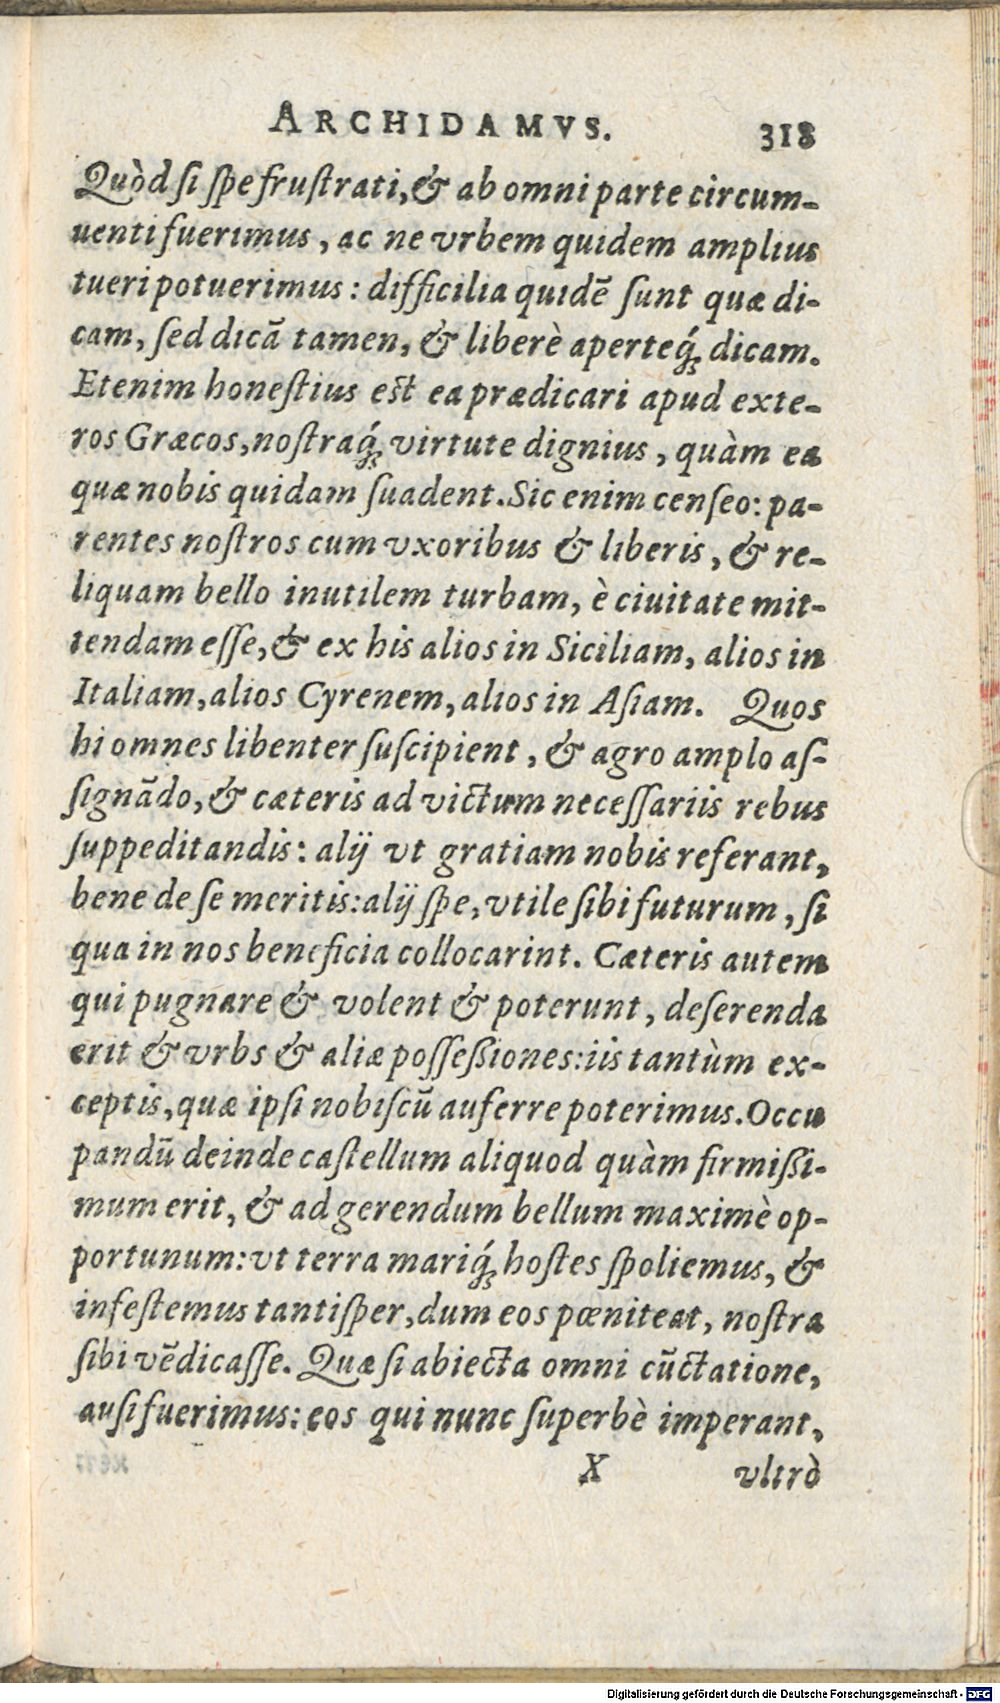 ARCHIDAMVS. 318
Quòd ſi ſpe fruſtrati, & ab omni parte circum-
uenti fuerimus, ac ne vrbem quidem amplius
tueri potuerimus: difficilia quidē ſunt quæ di-
cam, ſed dicā tamen, & liberè aperteq́ꝫ dicam.
Etenim honeſtius eſt ea prædicari apud exte-
ros Græcos, noſtraq́ꝫ virtute dignius, quàm ea
quæ nobis quidam ſuadent. Sic enim cenſeo: pa-
rentes noſtros cum vxoribus & liberis, & re-
liquam bello inutilem turbam, è ciuitate mit-
tendam eſſe, & ex his alios in Siciliam, alios in
Italiam, alios Cyrenem, alios in Aſiam. Quos
hi omnes libenter ſuſcipient, & agro amplo aſ-
ſignādo, & cæteris ad victum neceſſariis rebus
ſuppeditandis: alij vt gratiam nobis referant,
bene de ſe meritis: alij ſpe, vtile ſibi futurum, ſi
qua in nos beneficia collocarint. Cæteris autem
qui pugnare & volent & poterunt, deſerenda
erit & vrbs & aliæ poſſeßiones: iis tantùm ex-
ceptis, quæ ipſi nobiſcū auferre poterimus. Occu
pandū deinde caſtellum aliquod quàm firmißi-
mum erit, & ad gerendum bellum maximè op-
portunum: vt terra mariq́ꝫ hoſtes ſpoliemus, &
infeſtemus tantiſper, dum eos pœniteat, noſtra
ſibi vēdicaſſe. Quæ ſi abiecta omni cūctatione,
auſi fuerimus: eos qui nunc ſuperbè imperant,
X vltrò
Digitalisierung gefördert durch die Deutsche Forschungsgemeinschaft - DFG